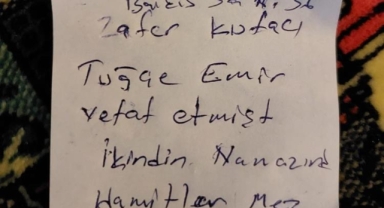 Zafer Kufacı
Tuğçe Emir
vefat etmişt
İkindin Namazınd
Hamitler Mez